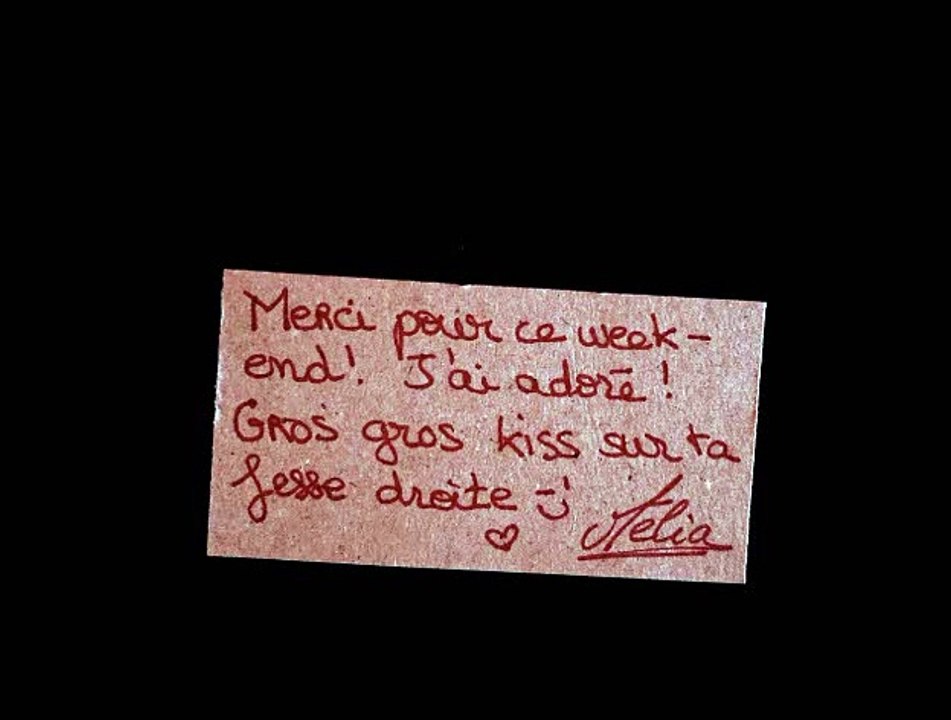 Merci pour ce week-
end! J'ai adoré !
Gros gros kiss sur ta
fesse droite ;-)
♡ Aelia